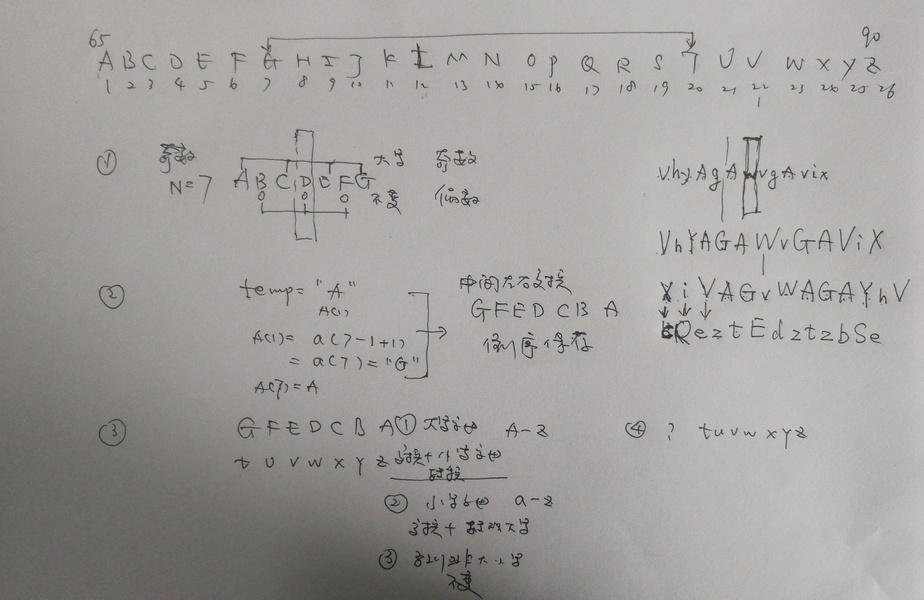 65 90
A B C D E F G H I J K L M N O P Q R S T U V W X Y Z
1 2 3 4 5 6 7 8 9 10 11 12 13 14 15 16 17 18 19 20 21 22 23 24 25 26
① 奇数 A B C D E F G 大写 奇数
N=7 不变 偶数
vhyAgAwvgAvix
VhYAGAWvGAViX
② temp="A" 中间左右交换
A(1) GFEDCBA
A(1)=a(7-1+1) 倒序保存
=a(7)="G"
A(7)=A
XiVAGvWAGAYhV
QeztEdztzbSe
③ GFEDCBA ① 大写字母 A-Z
tuvwxyz 变换+小写字母
② 小写字母 a-z
变换+ 大写
③ 大小写
不变
④ ? tuvwxyz